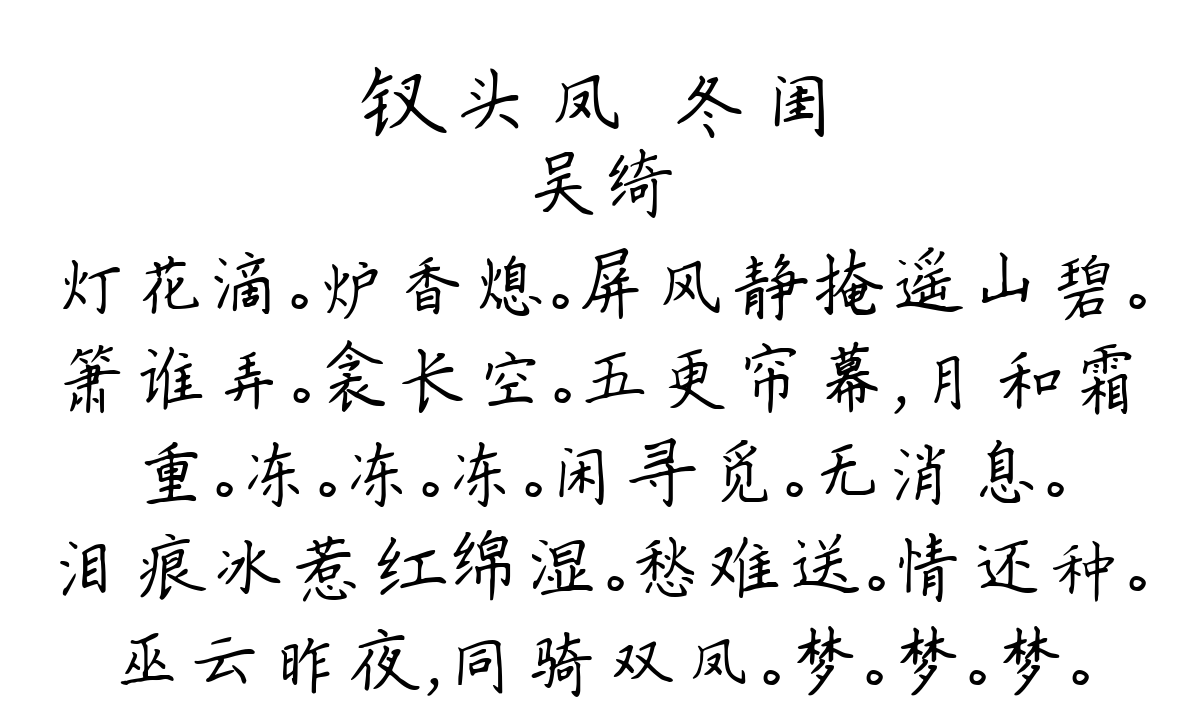 钗头凤 冬闺
吴绮
灯花滴。炉香熄。屏风静掩遥山碧。
箫谁弄。衾长空。五更帘幕,月和霜
重。冻。冻。冻。闲寻觅。无消息。
泪痕冰惹红绵湿。愁难送。情还种。
巫云昨夜,同骑双凤。梦。梦。梦。